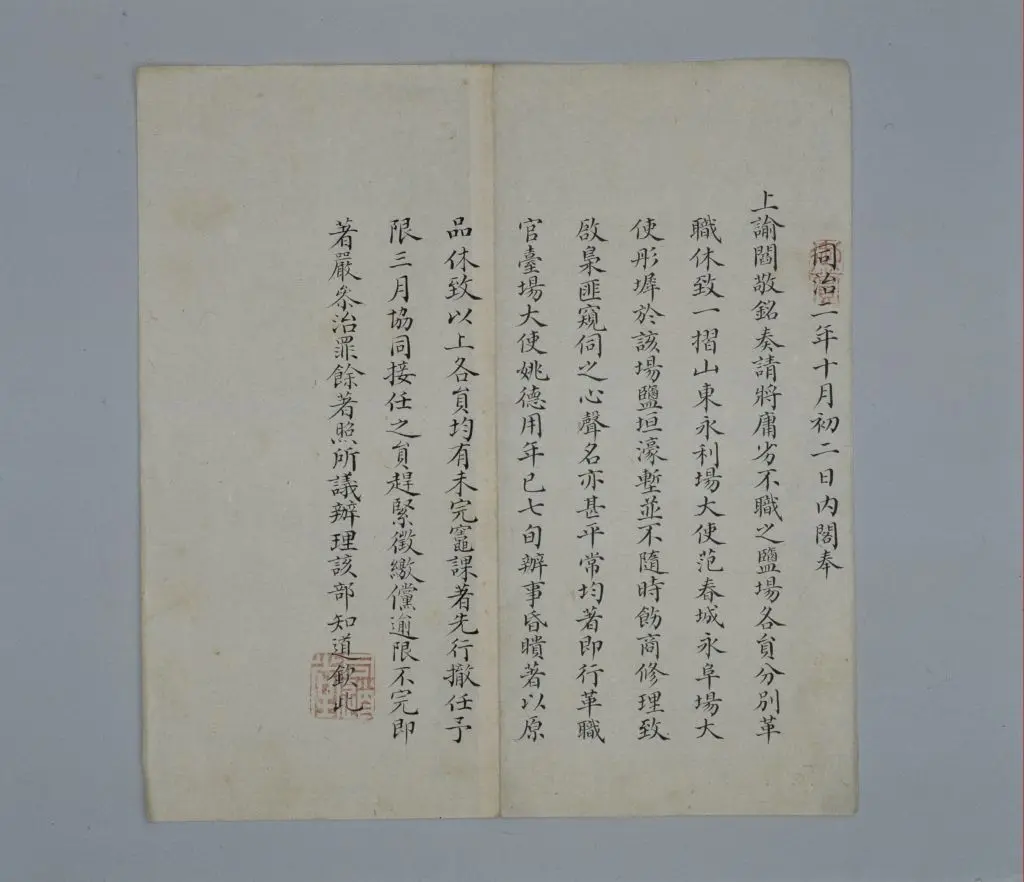 同治二年十月初二日內閣奉
上諭閻敬銘奏請將庸劣不職之鹽場各員分別革
職休致一摺山東永利場大使范春城永阜場大
使彤墀於該場鹽垣濠塹並不隨時飭商修理致
啟梟匪窺伺之心聲名亦甚平常均著即行革職
官臺場大使姚德用年已七旬辦事昏瞶著以原
品休致以上各員均有未完竈課著先行撤任予
限三月協同接任之員趕緊徵繳儻逾限不完即
著嚴叅治罪餘著照所議辦理該部知道欽此